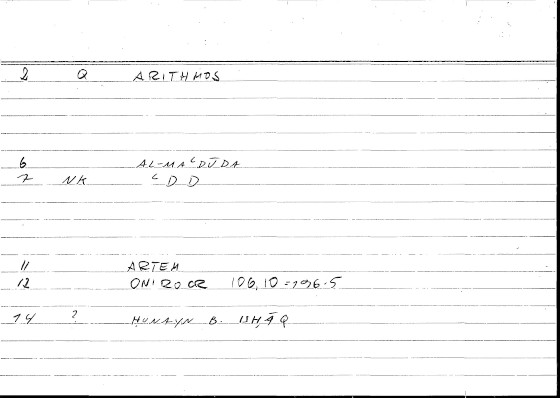 2 Q ARITHMOS
6 AL-MAʿDŪDA
7 NK ʿD D
11 ARTEM
12 ONIROCR 106,10=196.5
14 ? ḤUNAYN B. ISḤĀQ